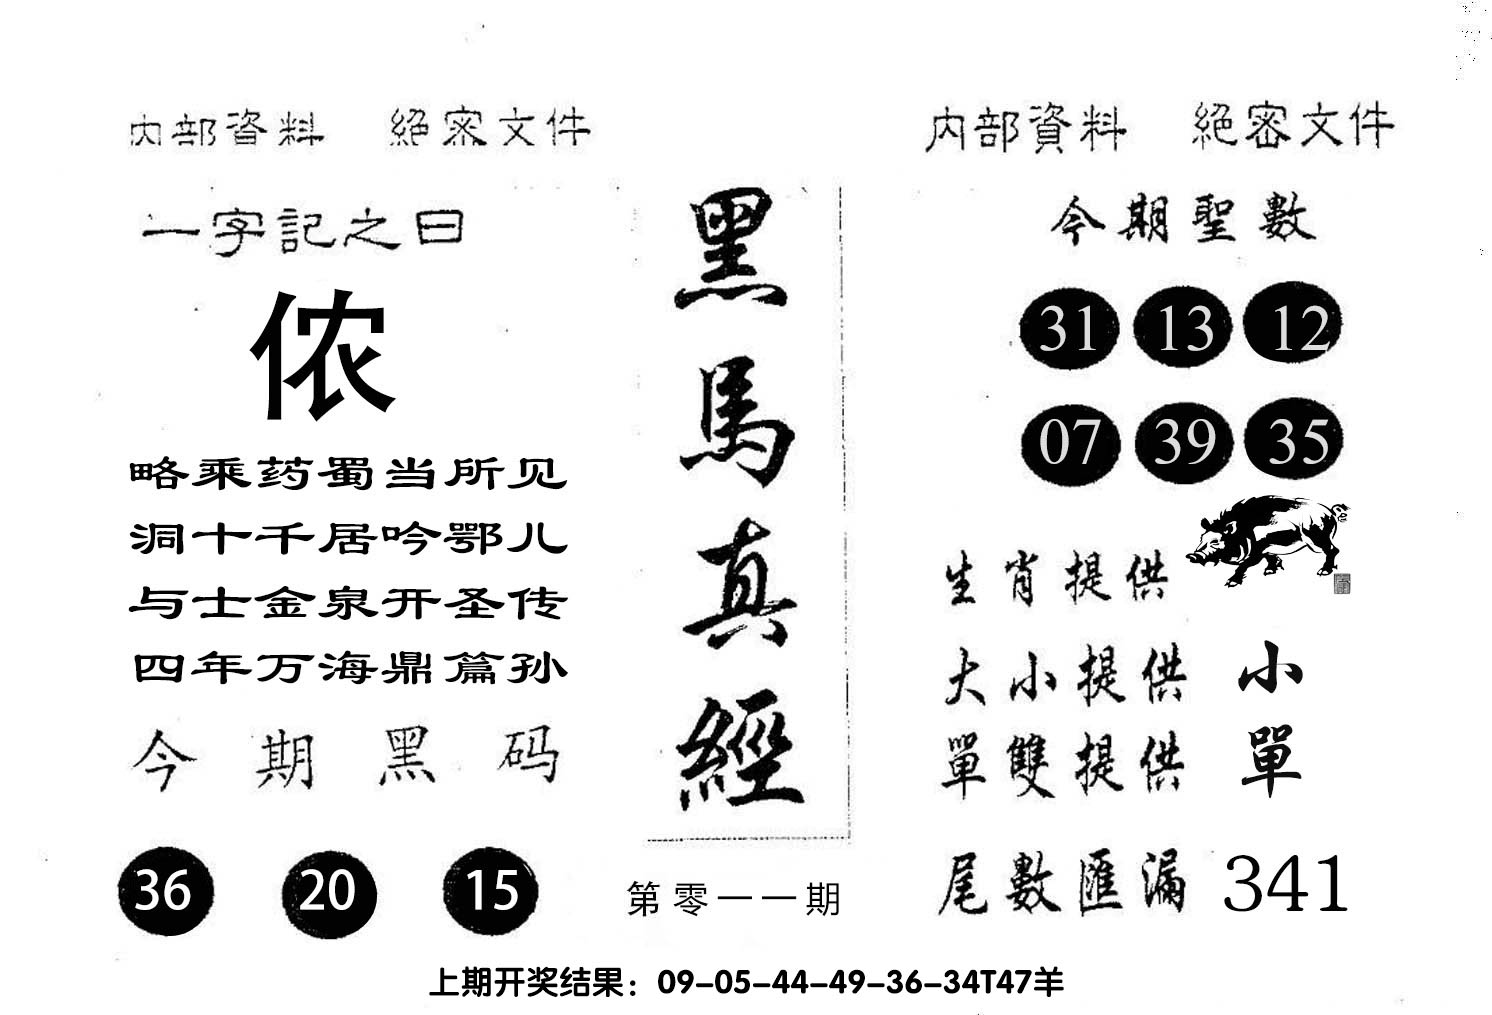 内部資料 絕密文件
一字記之曰
侬
略乘药蜀当所见
洞十千居吟鄂儿
与士金泉开圣传
四年万海鼎篇孙
今期黑码
36 20 15
黑馬真經
第零一一期
内部資料 絕密文件
今期聖數
31 13 12
07 39 35
生肖提供
大小提供 小
單雙提供 單
尾數匯漏 341
上期开奖结果：09-05-44-49-36-34T47羊